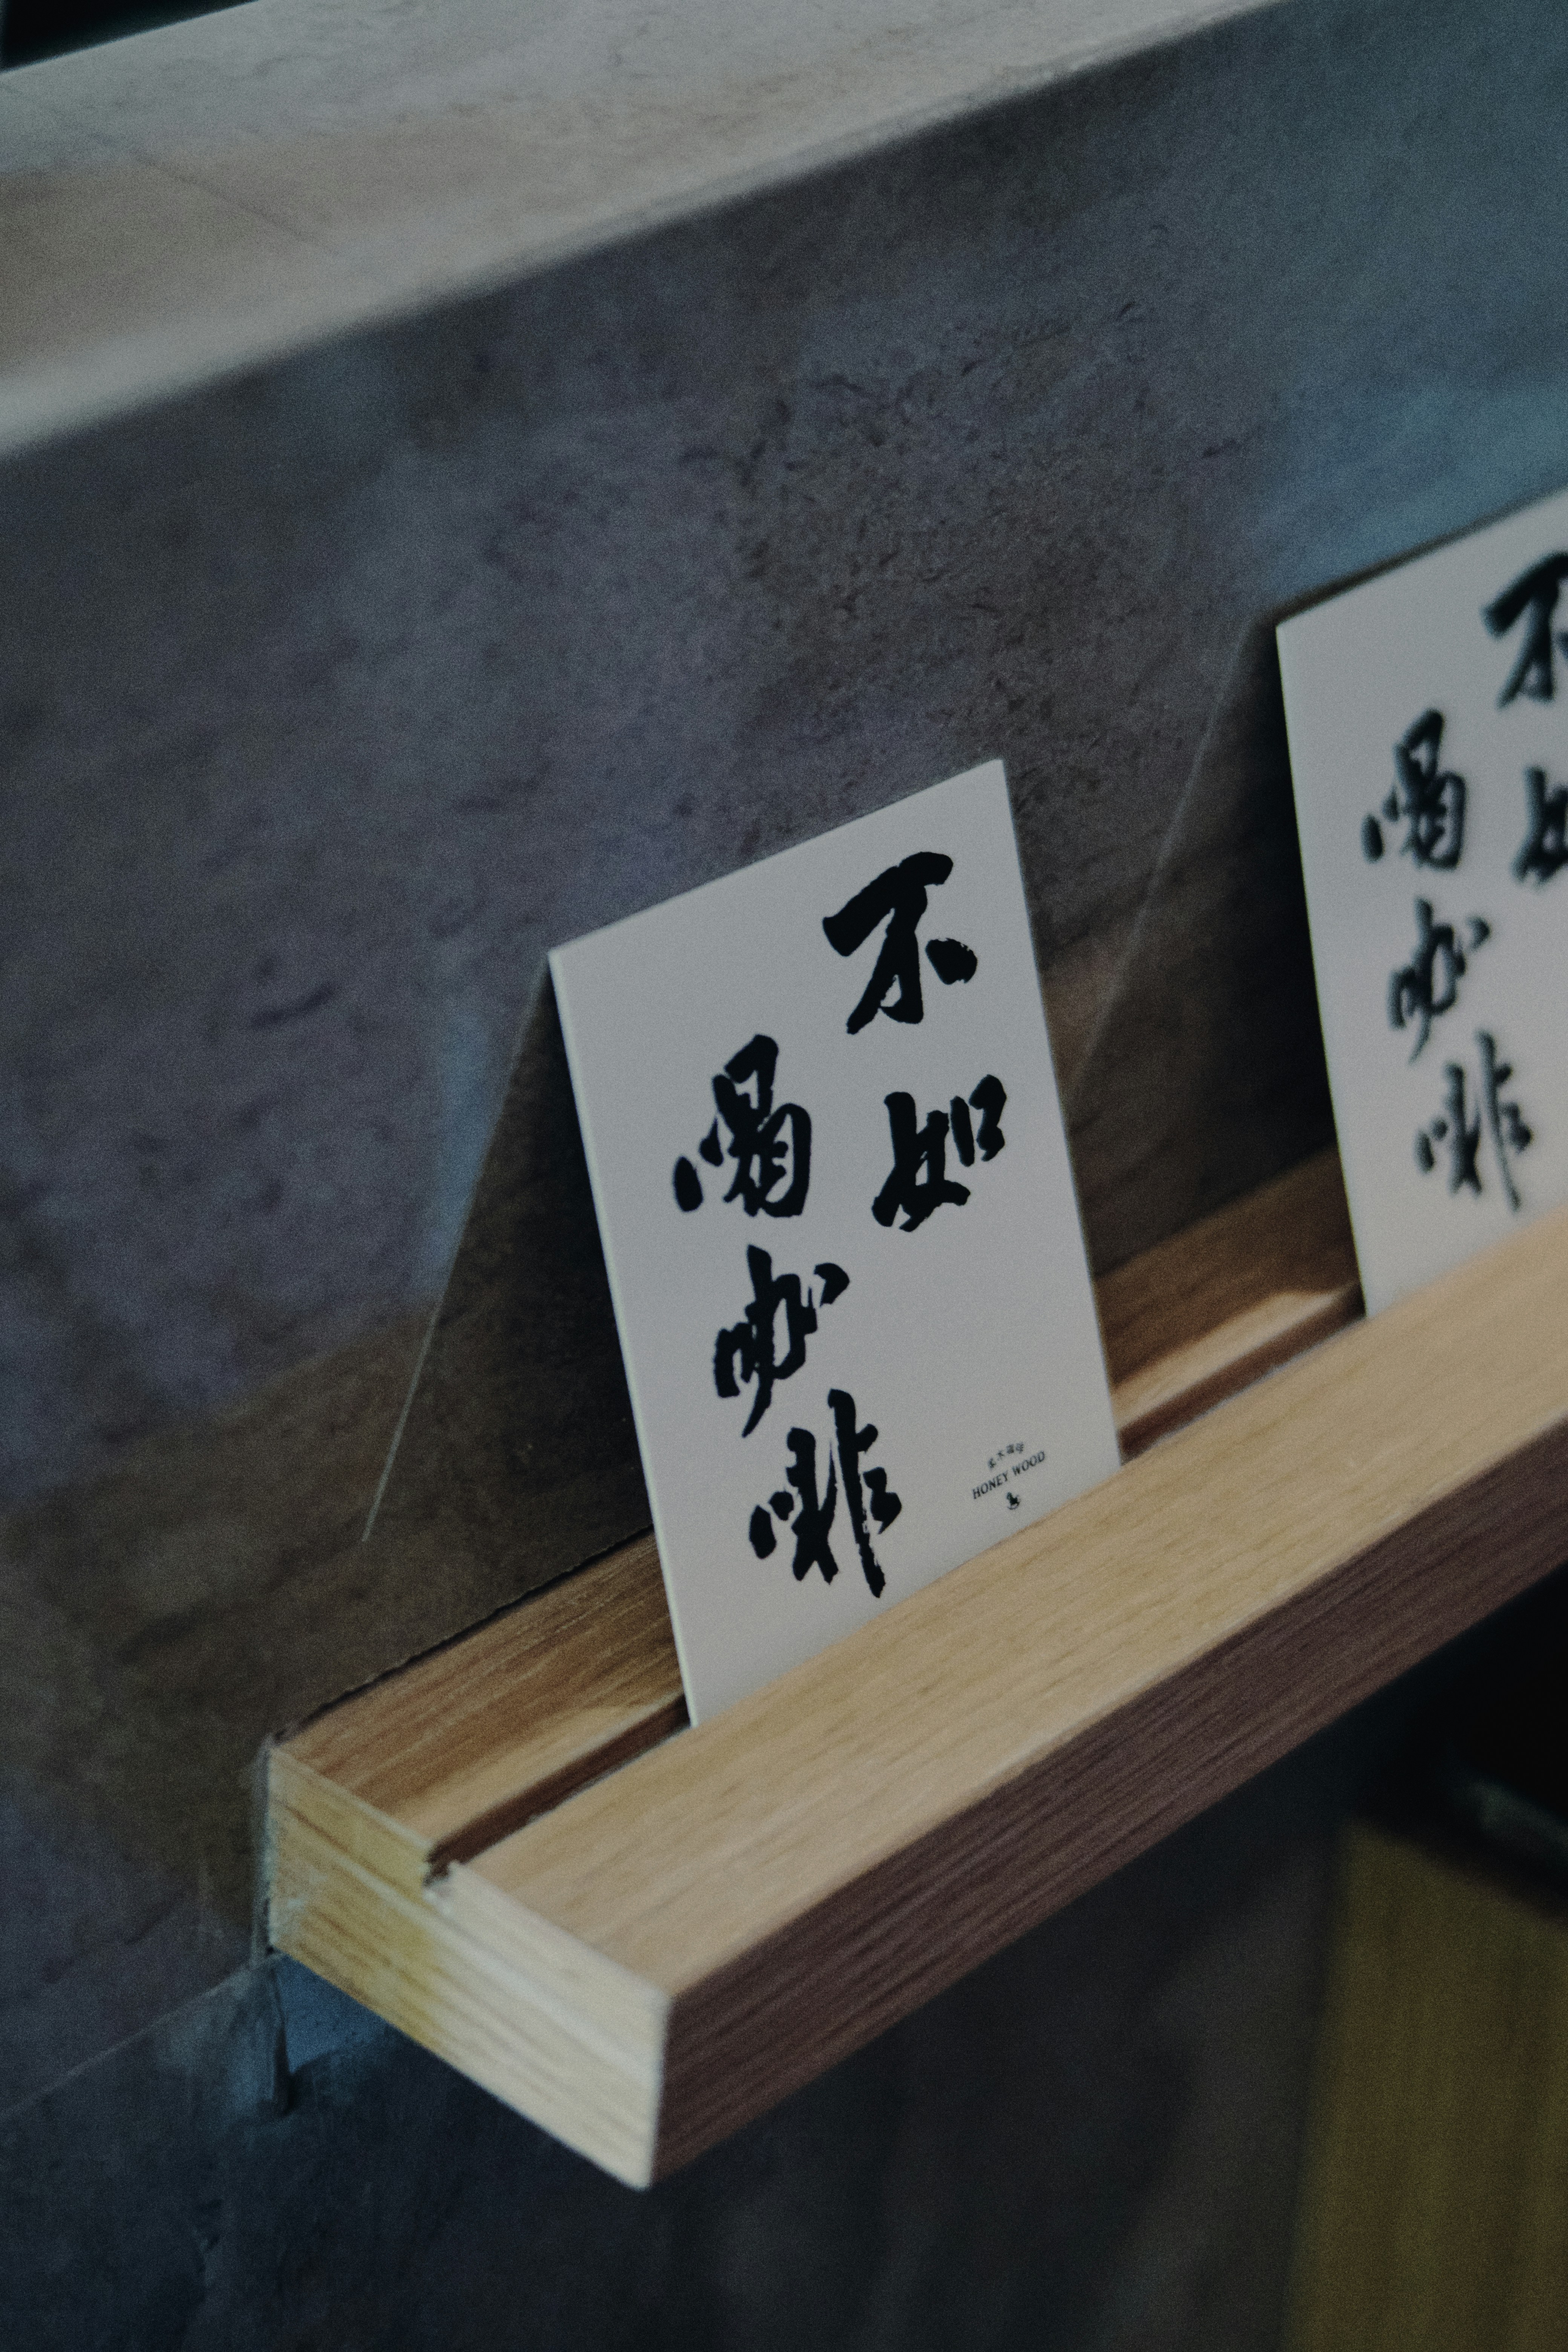 不如
喝咖啡
HONEY WOOD
不如
喝咖啡